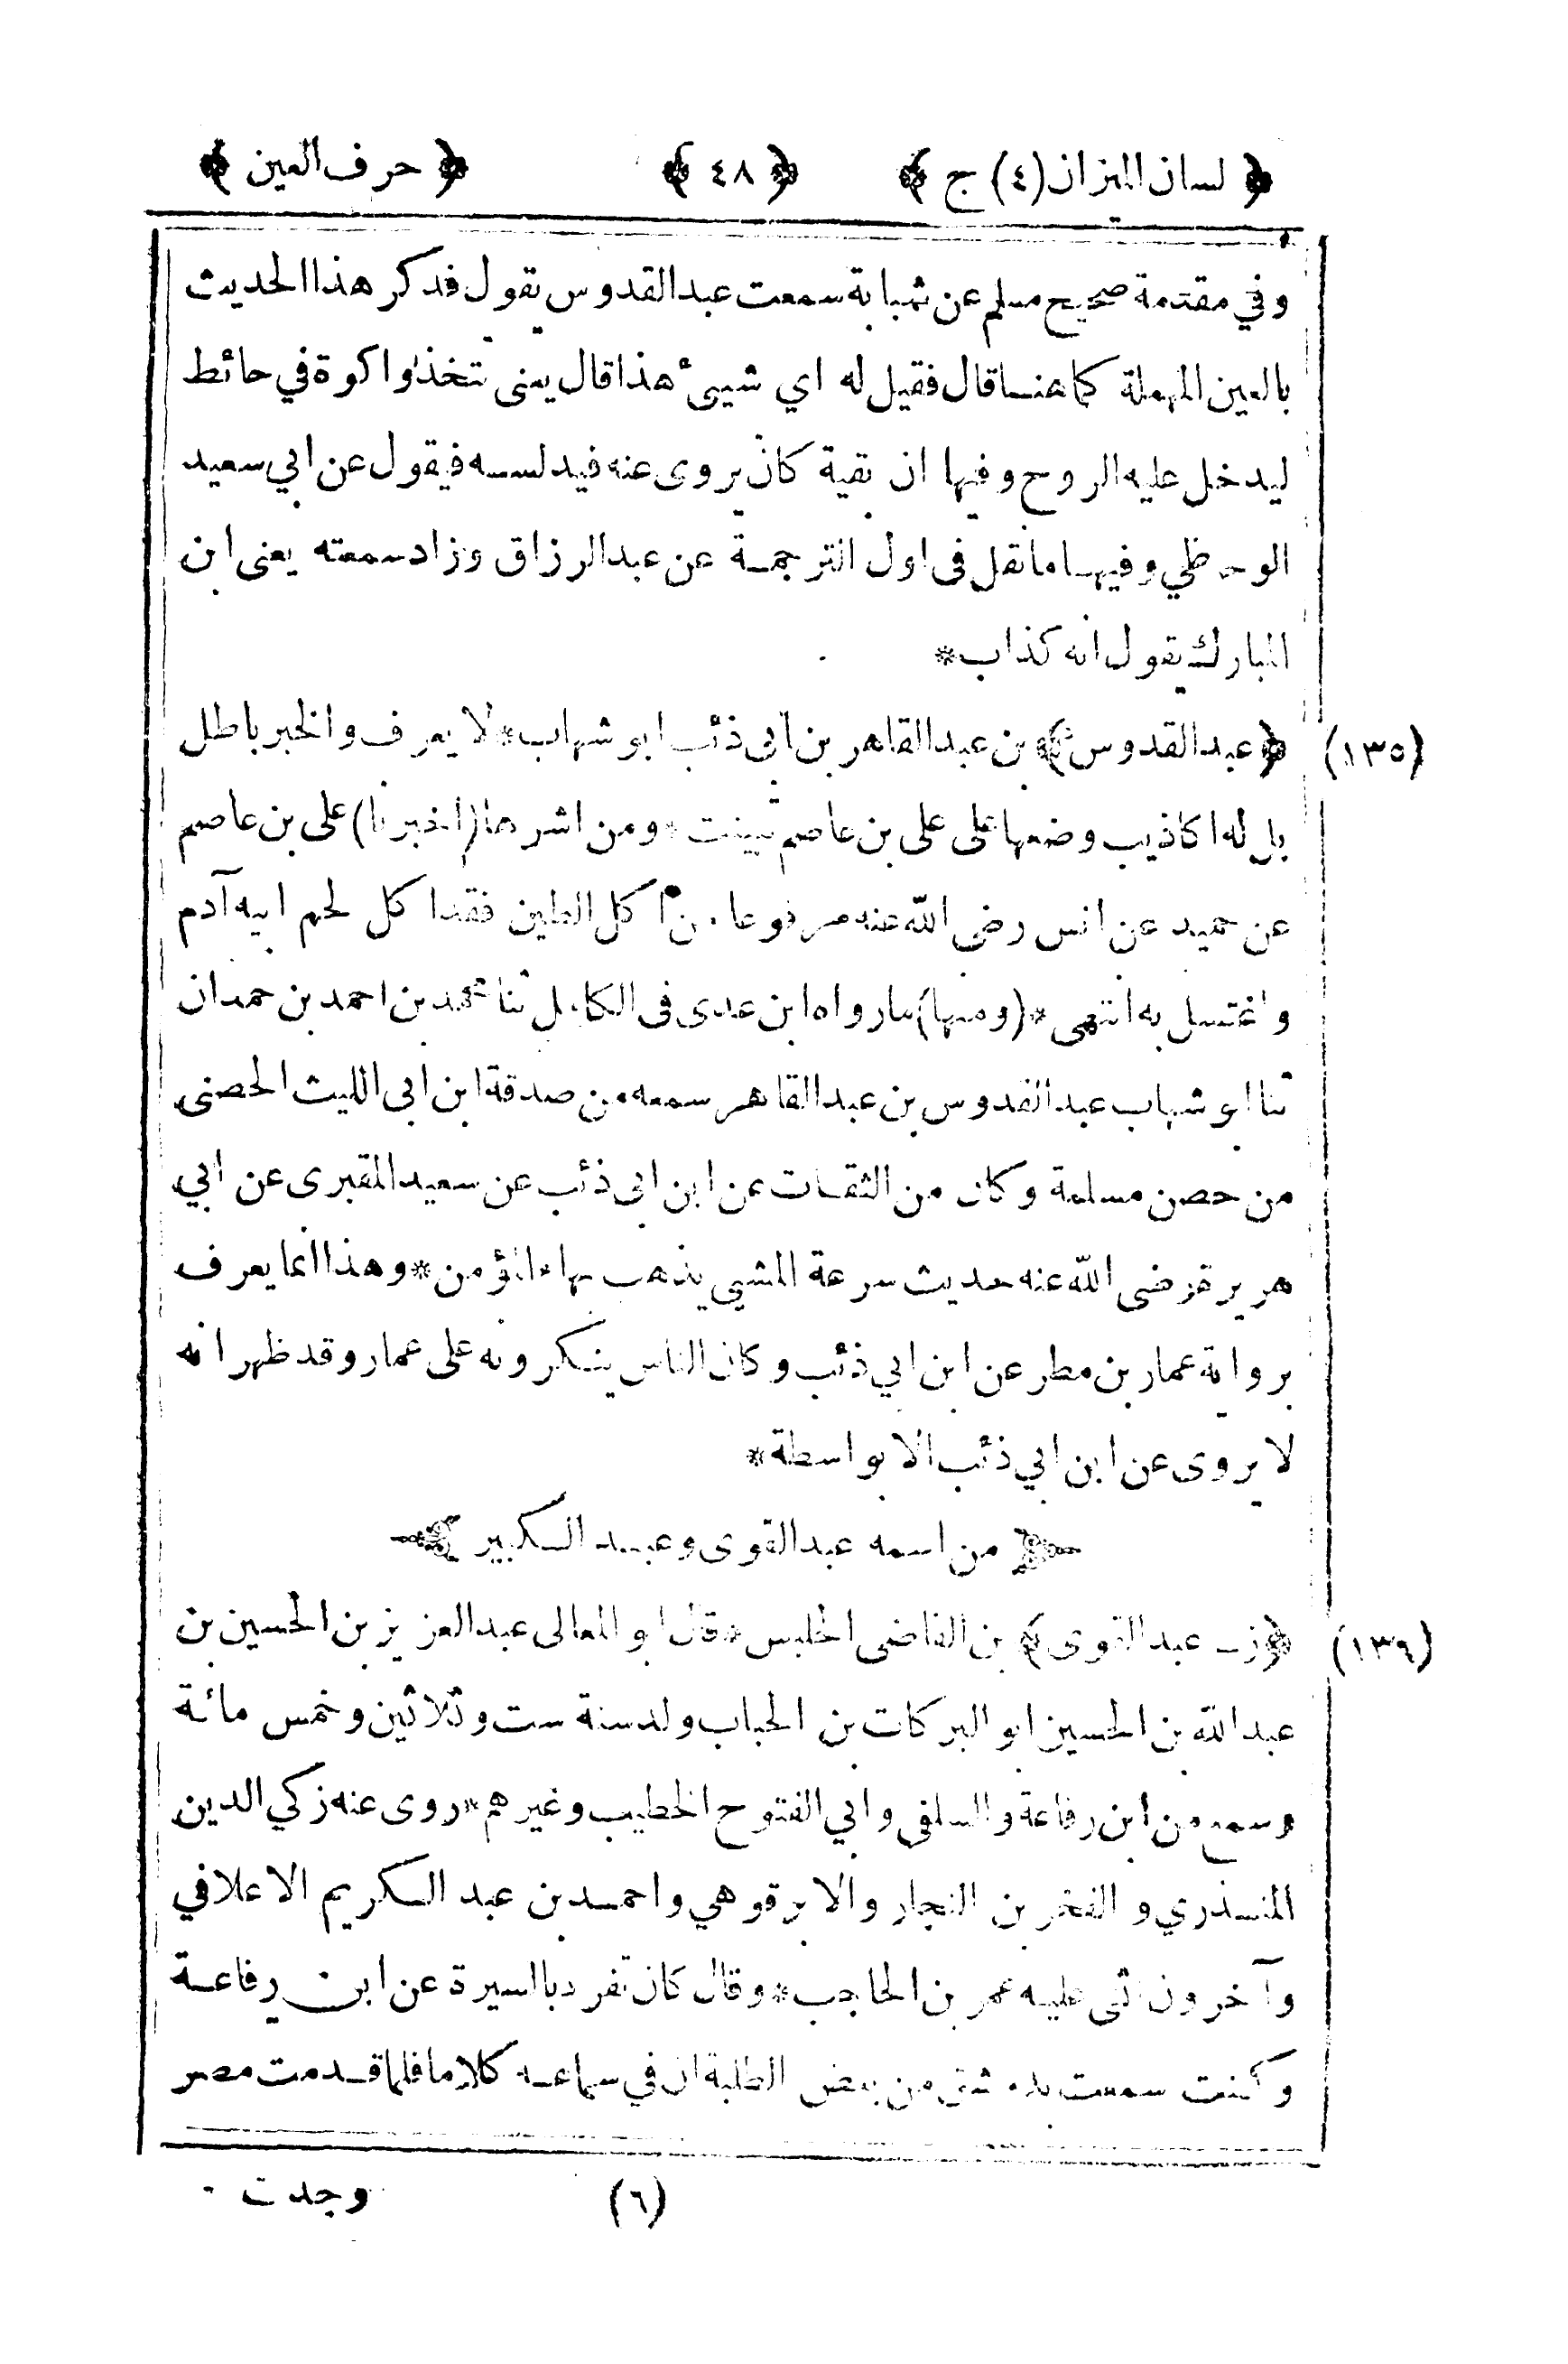 ﴿ لسان الميزان (٤) ج ﴾ ﴿ ٤٨ ﴾ ﴿ حرف العين ﴾
وفي مقدمة صحيح مسلم عن شبابة سمعت عبد القدوس يقول فذكر هذا الحديث
بالعين المهملة كما هنا قال فقيل له اي شيئ هذا قال يعنى تتخذوا كوة في حائط
ليدخل عليه الروح وفيها ان بقية كان يروى عنه فيدلسه فيقول عن ابي سعيد
الوحاظي وفيها ما نقل فى اول الترجمة عن عبد الرزاق وزاد سمعته يعنى ابن
المبارك يقول انه كذاب*
(١٣٥) ﴿ عبد القدوس ﴾ بن عبد القاهر بن ابى ذئب ابو شهاب* لا يعرف والخبر باطل
بل له اكاذيب وضعها على على بن عاصم تبينت* ومن اشرها (اخبرنا) على بن عاصم
عن حميد عن انس رضى الله عنه مرفوعا من اكل الطين فقد اكل لحم ابيه آدم
واغتسل به انتهى* (ومنها) ما رواه ابن عدى فى الكامل ثنا محمد بن احمد بن حمدان
ثنا ابو شهاب عبد القدوس بن عبد القاهر سمعه من صدقة ابن ابى الليث الحصنى
من حصن مسلمة وكان من الثقات عن ابن ابى ذئب عن سعيد المقبرى عن ابي
هريرة رضى الله عنه حديث سرعة المشي يذهب بهاء المؤمن* وهذا انما يعرف
برواية عمار بن مطر عن ابن ابي ذئب وكان الناس ينكرونه على عمار وقد ظهر انه
لا يروى عن ابن ابي ذئب الا بواسطة*
من اسمه عبد القوى وعبد الكبير
(١٣٦) ﴿ ز- عبد القوى ﴾ بن القاضى الجليس* قال ابو المعالى عبد العزيز بن الحسين بن
عبد الله بن الحسين ابو البركات بن الحباب ولد سنة ست وثلاثين وخمس مائة
وسمع من ابن رفاعة والسلفى وابي الفتوح الخطيب وغيرهم* روى عنه زكي الدين
المنذري و الفخر بن النجار والابرقوهي واحمد بن عبد الكريم الاعلافي
وآخرون اثنى عليه عمر بن الحاجب* وقال كان تفرد بالسيرة عن ابن رفاعة
وكنت سمعت بدمشق من بعض الطلبة ان في سماعه كلاما فلما قدمت مصر
(٦) وجدت